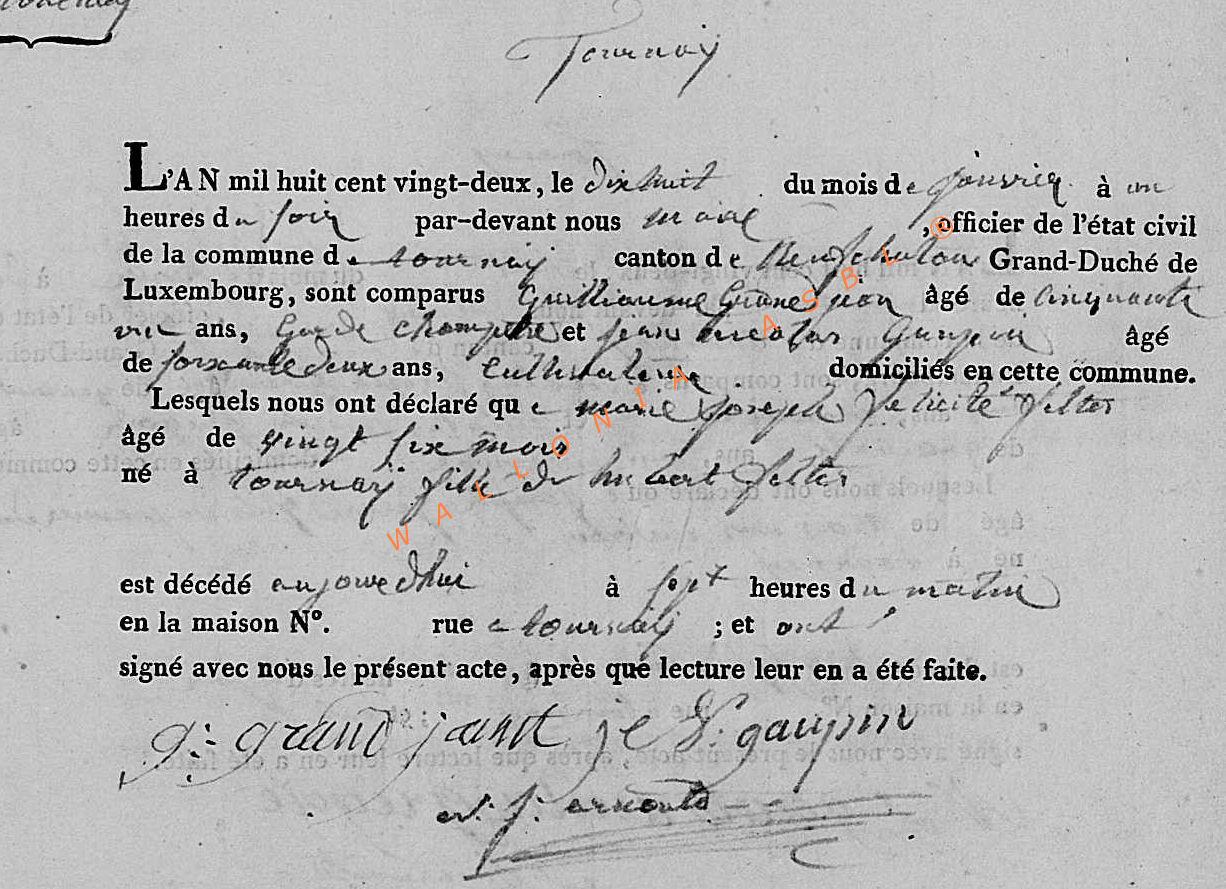 Tournay
L'AN mil huit cent vingt-deux, le dix huit du mois de janvier à un
heures du soir par-devant nous maire , officier de l'état civil
de la commune de tournay canton de Neufchateau Grand-Duché de
Luxembourg, sont comparus Guilliaume Grandjean âgé de cinquante
un ans, Garde champetre et jean nicolas Gaupin âgé
de soixante deux ans, Cultivateur domiciliés en cette commune.
Lesquels nous ont déclaré que marie joseph felicité felter
âgé de vingt six mois
né à tournay fille de hubert felter
est décédé aujourdhui à sept heures du matin
en la maison N°. rue a tournay ; et ont
signé avec nous le présent acte, après que lecture leur en a été faite.
g: grand jant je gaupin
arnould
WALLONIA ASBL ®